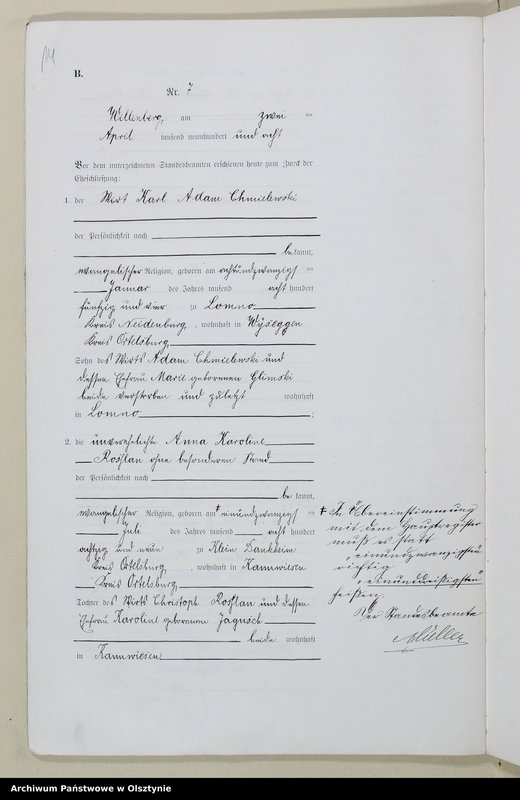 B.
Nr. 7
Willenberg, am zwei ten
April tausend neunhundert und acht
Vor dem unterzeichneten Standesbeamten erschienen heute zum Zweck der
Eheschließung:
1. der Wirt Karl Adam Chmielewski
der Persönlichkeit nach
bekannt,
evangelischer Religion, geboren am achtundzwanzigs ten
Januar des Jahres tausend acht hundert
fünfzig und vier zu Lomno
Kreis Neidenburg, wohnhaft in Wyseggen
Kreis Ortelsburg
Sohn des Wirts Adam Chmielewski und
dessen Ehefrau Marie geborenen Glimski
beide verstorben und zuletzt wohnhaft
in Lomno ;
2. die unverehelichte Anna Karoline
Roßlan ohne besonderen Stand
der Persönlichkeit nach
be kannt,
evangelischer Religion, geboren am + einundzwanzigs ten
Juli des Jahres tausend acht hundert
achtzig und neun zu Klein Dankheim
Kreis Ortelsburg, wohnhaft in Kannwiesen
Kreis Ortelsburg
Tochter des Wirts Christoph Roßlan und dessen
Ehefrau Karoline geborenen Jagusch
beide wohnhaft
in Kannwiesen
+ In Übereinstimmung
mit dem Hauptregister
muß es statt
"einundzwanzigsten"
richtig
"einunddreißigsten"
heißen.
Der Standesbeamte
Müller
Archiwum Państwowe w Olsztynie